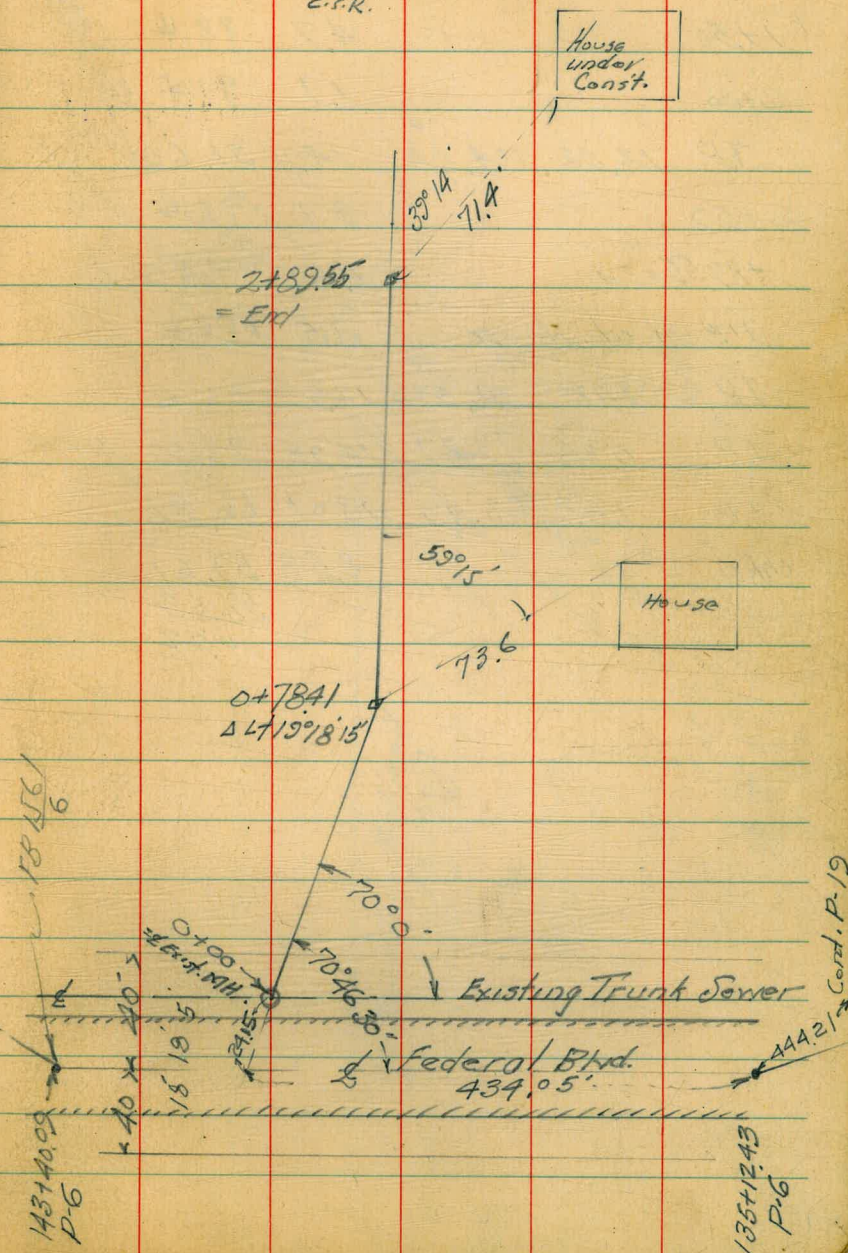 C.S.R.
House
under
Const.
39°14'
71.4'
2+89.55
= End
59°15'
House
73.6
0+78.41
Δ Lt 19°18'15"
70°0'
0+00
Exist. MH.
70°46'
Existing Trunk Sewer
40' 40'
18 19.5
Federal Blvd.
434.05'
444.21 Cont. P-19
143+40.09
P-6
135+12.43
P-6